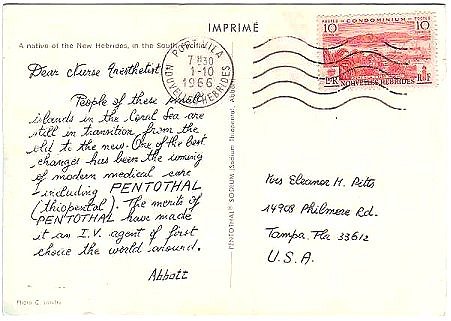 IMPRIMÉ
A native of the New Hebrides, in the South Pacific.
Dear Nurse Anesthetist
People of these small
islands in the Coral Sea are
still in transition from the
old to the new. One of the best
changes has been the coming
of modern medical care
- including PENTOTHAL
(thiopental). The merits of
PENTOTHAL have made
it an I.V. agent of first
choice the world around.
Abbott
Photo C.
PENTOTHAL® SODIUM (Sodium Thiopental, Abbott)
PORT-VILA
7H30
1-10
1966
NOUVELLES HEBRIDES
POSTES CONDOMINIUM POSTES
10 10
RF
NOUVELLES HEBRIDES
Mrs Eleanor H. Pitts
14908 Philmore Rd.
Tampa, Fla 33612
U.S.A.